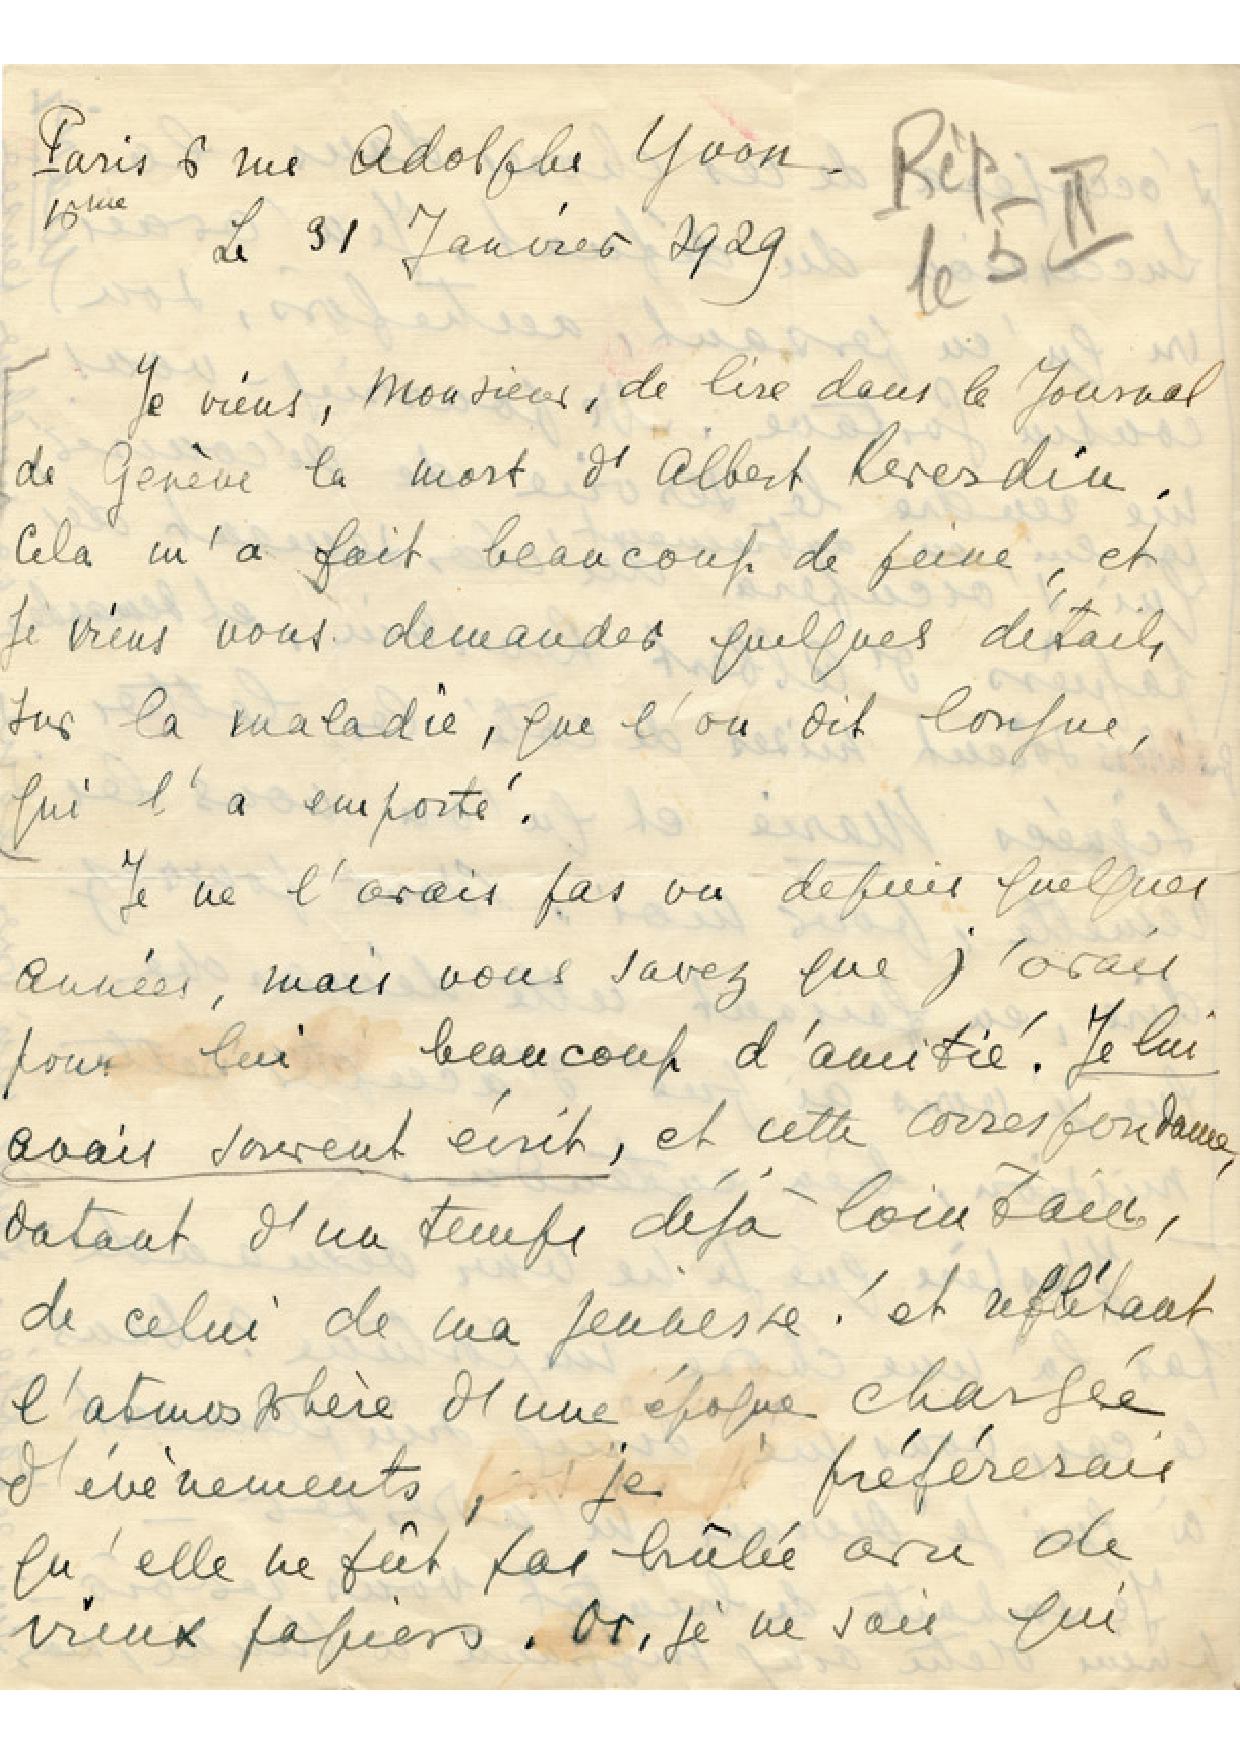 Paris 6 rue Adolphe Yvon
16ème
Le 31 Janvier 1929
Rép.
le 5 II
Je viens, Monsieur, de lire dans le Journal
de Genève la mort d'Albert Reverdin.
Cela m'a fait beaucoup de peine, et
je viens vous demander quelques détails
sur la maladie, que l'on dit longue,
qui l'a emporté.
Je ne l'avais pas vu depuis quelques
années, mais vous savez que j'avais
pour lui beaucoup d'amitié. Je lui
avais souvent écrit, et cette correspondance,
datant d'un temps déjà lointain,
de celui de ma jeunesse ! et reflétant
l'atmosphère d'une époque chargée
d'évènements, je préférerais
qu'elle ne fût pas brûlée avec de
vieux papiers. Or, je ne sais qui